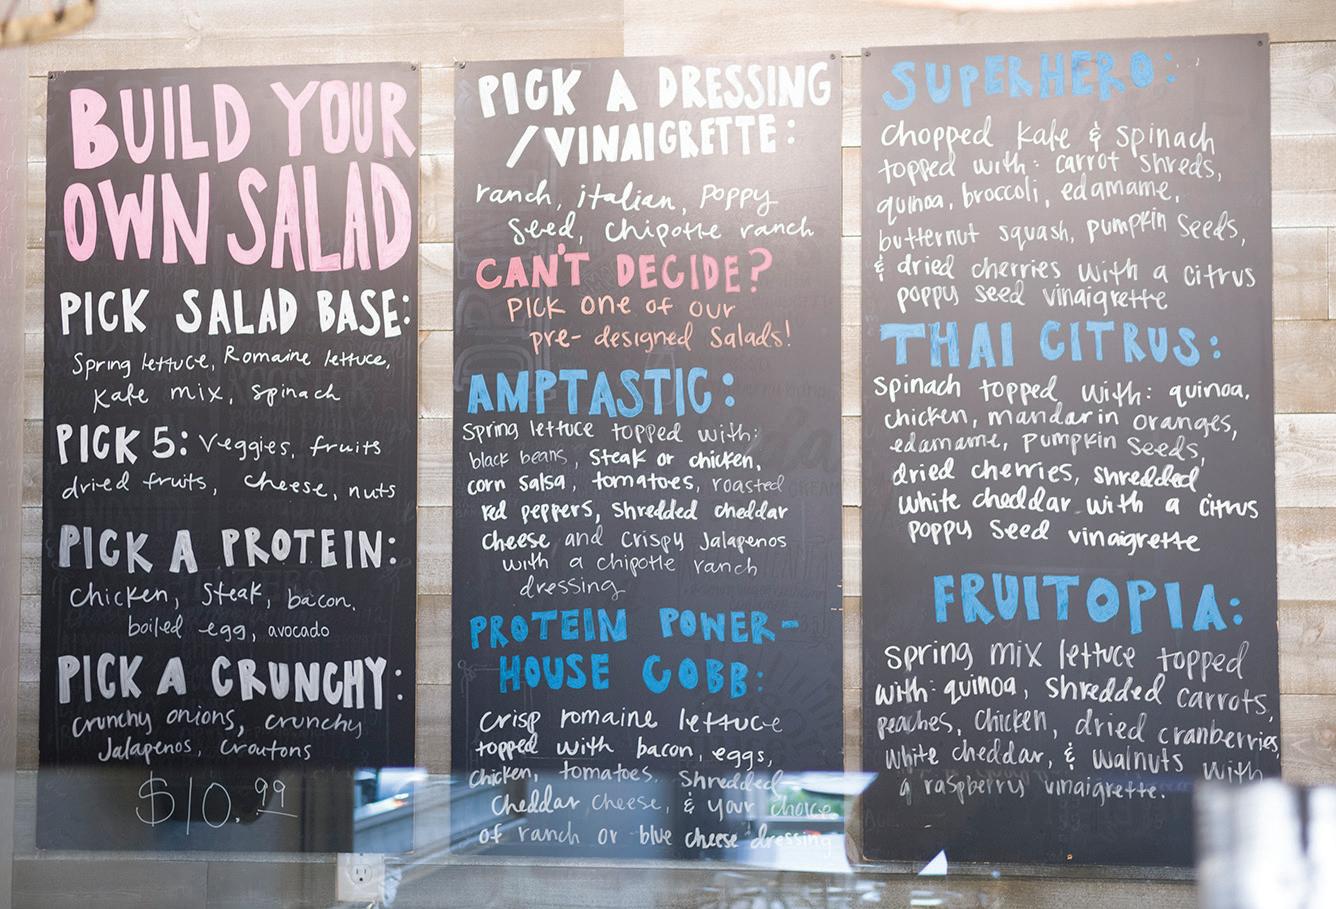 BUILD YOUR
OWN SALAD
PICK SALAD BASE:
Spring lettuce, Romaine lettuce,
Kale mix, spinach
PICK 5: Veggies, fruits
dried fruits, cheese, nuts
PICK A PROTEIN:
Chicken, Steak, bacon.
boiled egg, avocado
PICK A CRUNCHY:
crunchy onions, crunchy
Jalapenos, croutons
$10.99
PICK A DRESSING
/VINAIGRETTE:
ranch, italian, poppy
Seed, Chipotle ranch
CAN'T DECIDE?
PICK one of our
pre-designed Salads!
AMPTASTIC:
Spring lettuce topped with:
black beans, Steak or chicken,
corn salsa, tomatoes, roasted
red peppers, Shredded cheddar
cheese and crispy Jalapenos
with a chipotle ranch
dressing
PROTEIN POWER-
HOUSE COBB:
Crisp romaine lettuce
topped with bacon, eggs,
Chicken, tomatoes, Shredded
Cheddar cheese, & your choice
of ranch or blue cheese dressing
SUPERHERO:
Chopped Kale & spinach
topped with: carrot shreds,
quinoa, broccoli, edamame,
butternut squash, pumpkin Seeds,
& dried cherries with a citrus
poppy seed vinaigrette
THAI CITRUS:
Spinach topped with: quinoa,
chicken, mandarin oranges,
edamame, pumpkin Seeds,
dried cherries, shredded
white cheddar with a citrus
poppy Seed vinaigrette
FRUITOPIA:
Spring mix lettuce topped
with: quinoa, Shredded carrots,
peaches, chicken, dried cranberries,
white cheddar, & walnuts with
a raspberry vinaigrette.